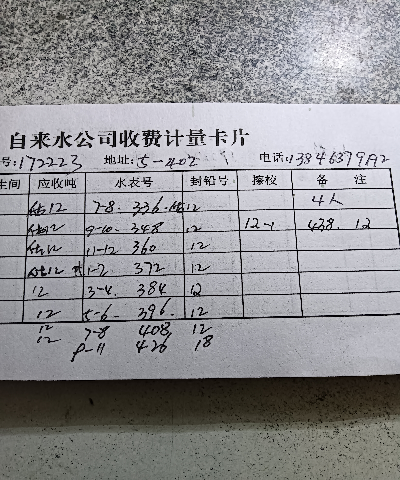 自来水公司收费计量卡片
号:172223 地址:5-402 电话:13846379
生间 应收吨 水表号 封铅号 擦校 备 注
12 7-8. 336. 12 4人
12 9-10. 348 12 12-1 438. 12
12 11-12 360 12
12 1-2 372 12
12 3-4. 384 12
12 5-6. 396. 12
12 7-8 408 12
12 9-11 426 18